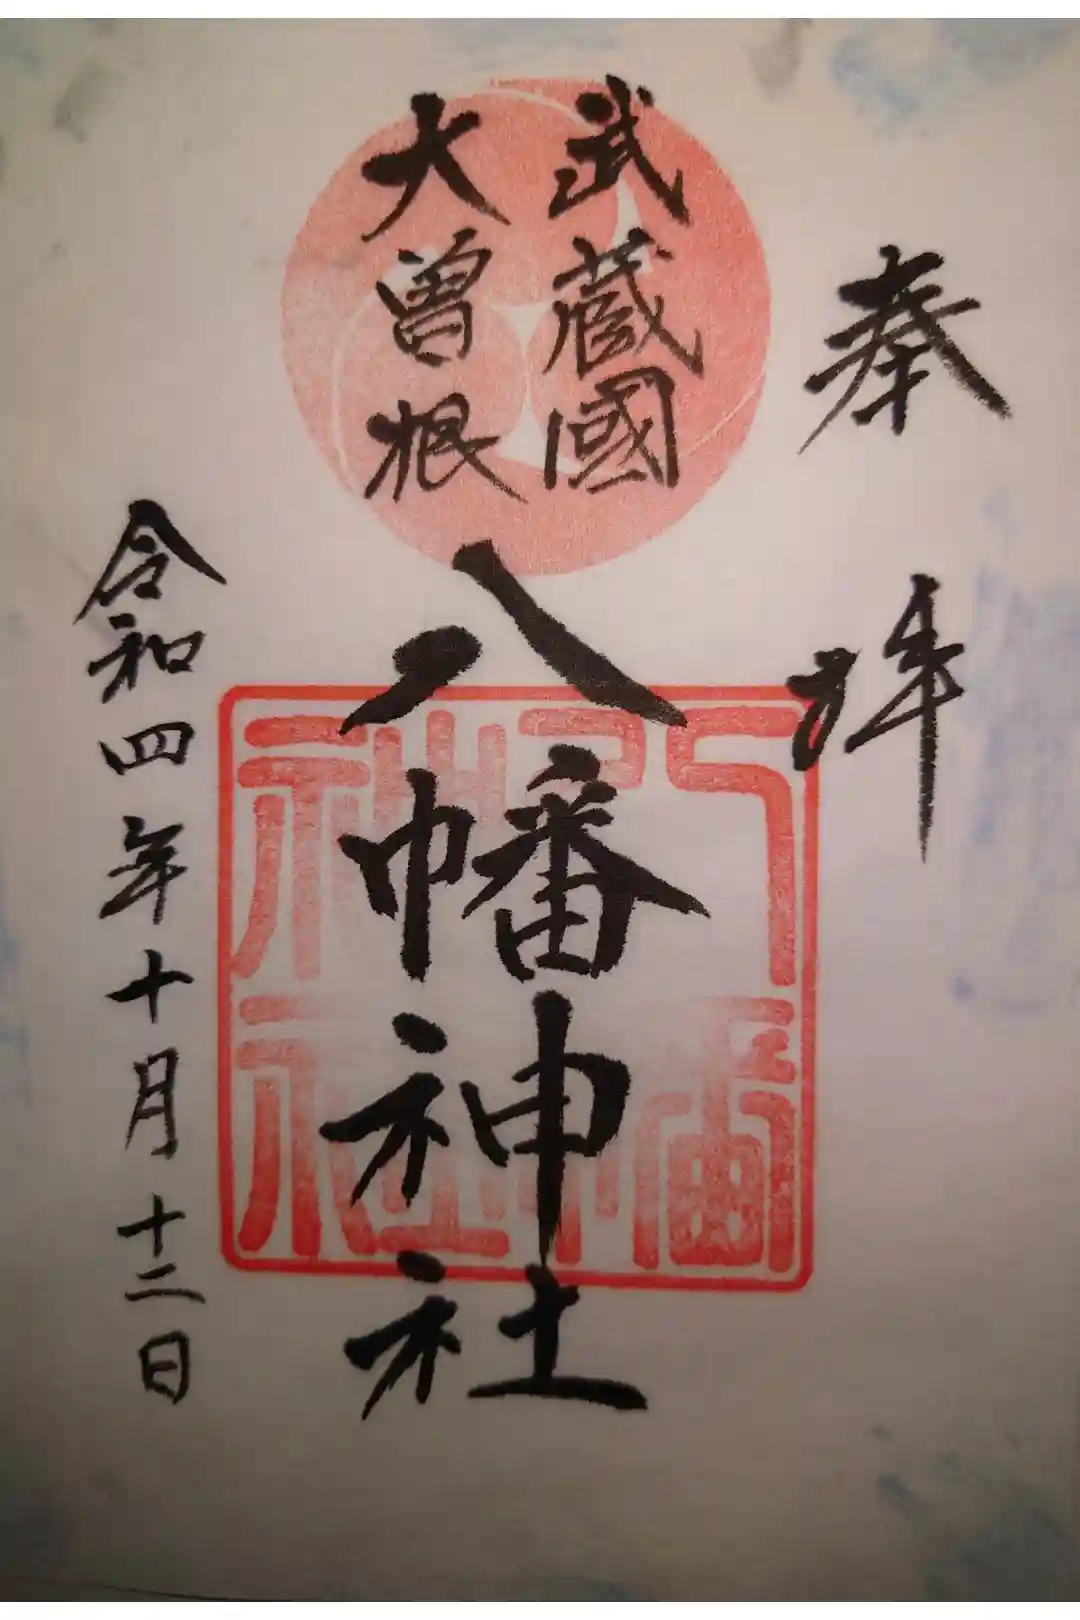 奉拝
武蔵國
大曽根
八幡神社
令和四年十月十二日